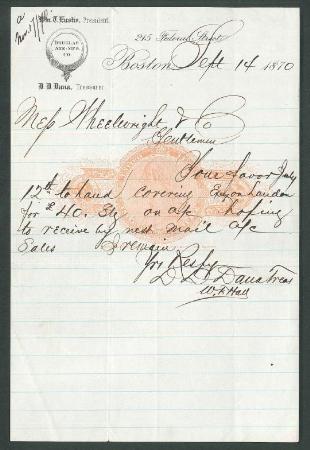 Wm. T. Eustis, President.
DOUGLAS AXE MFG. CO.
D. D. Dana, Treasurer
245 Federal Street,
Boston, Sept 14 1870
Mess Wheelwright & Co
Gentlemen
Your favor July
12th to hand covering Ex on London
for £40. 3/9 on a/c hoping
to receive by next mail a/c
Sales I remain
Yrs Respy
D. D. Dana Treas
W. F. Hall